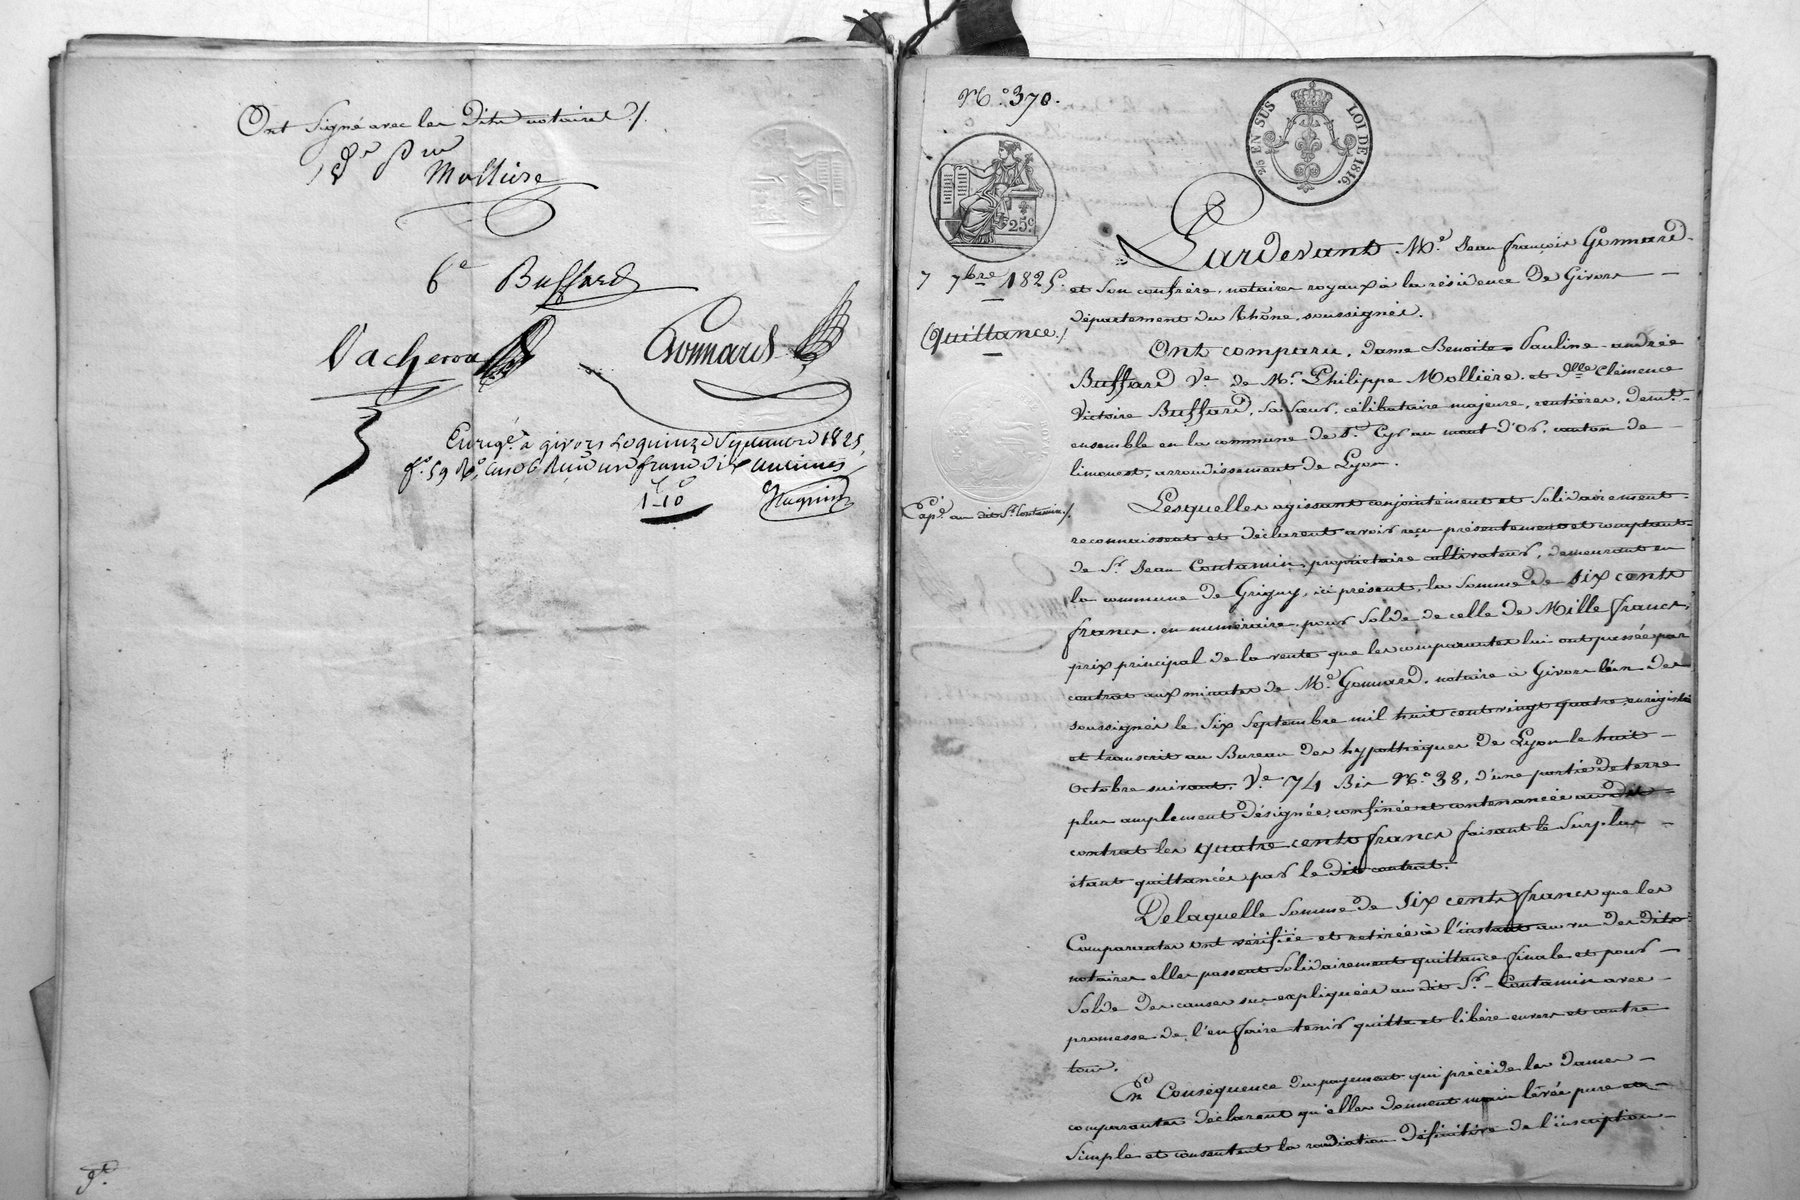 Ont signé avec les dits notaires ./.
Mollière
Ce Buffard
Vacheron
Gonnard
Enregé à givors le quinze Septembre 1825,
fo 59 Ro, Case 6 Reçu un franc dix centimes
1-10
N.o 370.
25 EN SUS LOI DE 1816.
25c
7 7bre 1825.
Quittance ./
Expé au dit Sr Contamin ./.
Pardevant M.e Jean françois Gonnard
et Son confrère, notaires royaux à la résidence de Givors
département du Rhône, soussignés.
Ont comparu, dame Benoite Pauline andrée
Buffard Ve de Mr Philippe Mollière, et Dlle Clémence
Victoire Buffard, sa sœur, célibataire majeure, rentières, demt
ensemble en la commune de St Cyr au mont d'Or, canton de
limonest, arrondissement de Lyon.
Lesquelles agissant conjointement et Solidairement
reconnaissent et déclarent avoir reçu présentement et comptant
de Sr Jean Contamin, propriétaire cultivateur, demeurant en
la commune de Grigny, ici présent, la Somme de six cents
francs, en numéraire, pour Solde de celle de Mille francs,
prix principal de la vente que les comparantes lui ont passée par
contrat aux minutes de M.e Gonnard, notaire à Givors l'un des
soussignés le six Septembre mil huit cent vingt quatre, enrégistré
et transcrit au Bureau des hypothèques de Lyon le huit
Octobre suivant, Ve 74 Bis N.o 38, d'une partie de terre
plus amplement désignée, confinée et contenancée au dit
contrat les quatre cents francs faisant le Surplus
étant quittancés par le dit contrat.
De laquelle Somme de six cents francs que les
Comparantes ont vérifiée et retirée à l'instant au vu des dits
notaires elles passent Solidairement quittance finale et pour
Solde des causes sus expliquées au dit Sr Contamin avec
promesse de l'en faire tenir quitte et libéré envers et contre
tous.
En Conséquence du payement qui précède les dames
comparantes déclarent qu'elles donnent main levée pure et
Simple et consentent la radiation définitive de l'inscription